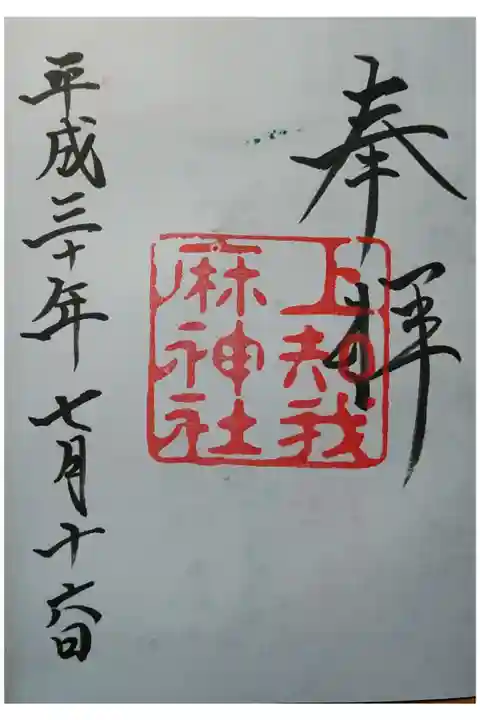 奉拝
上知我
麻神社
平成三十年七月十六日